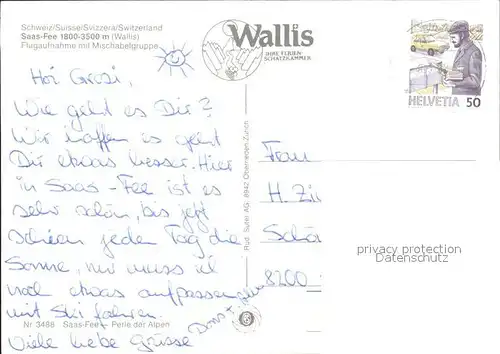 Schweiz/Suisse/Svizzera/Switzerland
Saas-Fee 1800-3500 m (Wallis)
Flugaufnahme mit Mischabelgruppe
Wallis
IHRE FERIEN-
SCHATZKAMMER
HELVETIA 50
Hoi Grosi,
Wie geht es Dir?
Wir hoffen es geht
Dir etwas besser. Hier
in Saas-Fee ist es
sehr schön, bis jetzt
schien jeden Tag die
Sonne, nur muss ich
noch etwas aufpassen
mit Ski fahren.
Viele liebe Grüsse
Frau
H. Zü
Schä
8200
Rud. Suter AG, 8942 Oberrieden-Zürich
privacy protection
Datenschutz
Nr 3486 Saas-Fee – Perle der Alpen